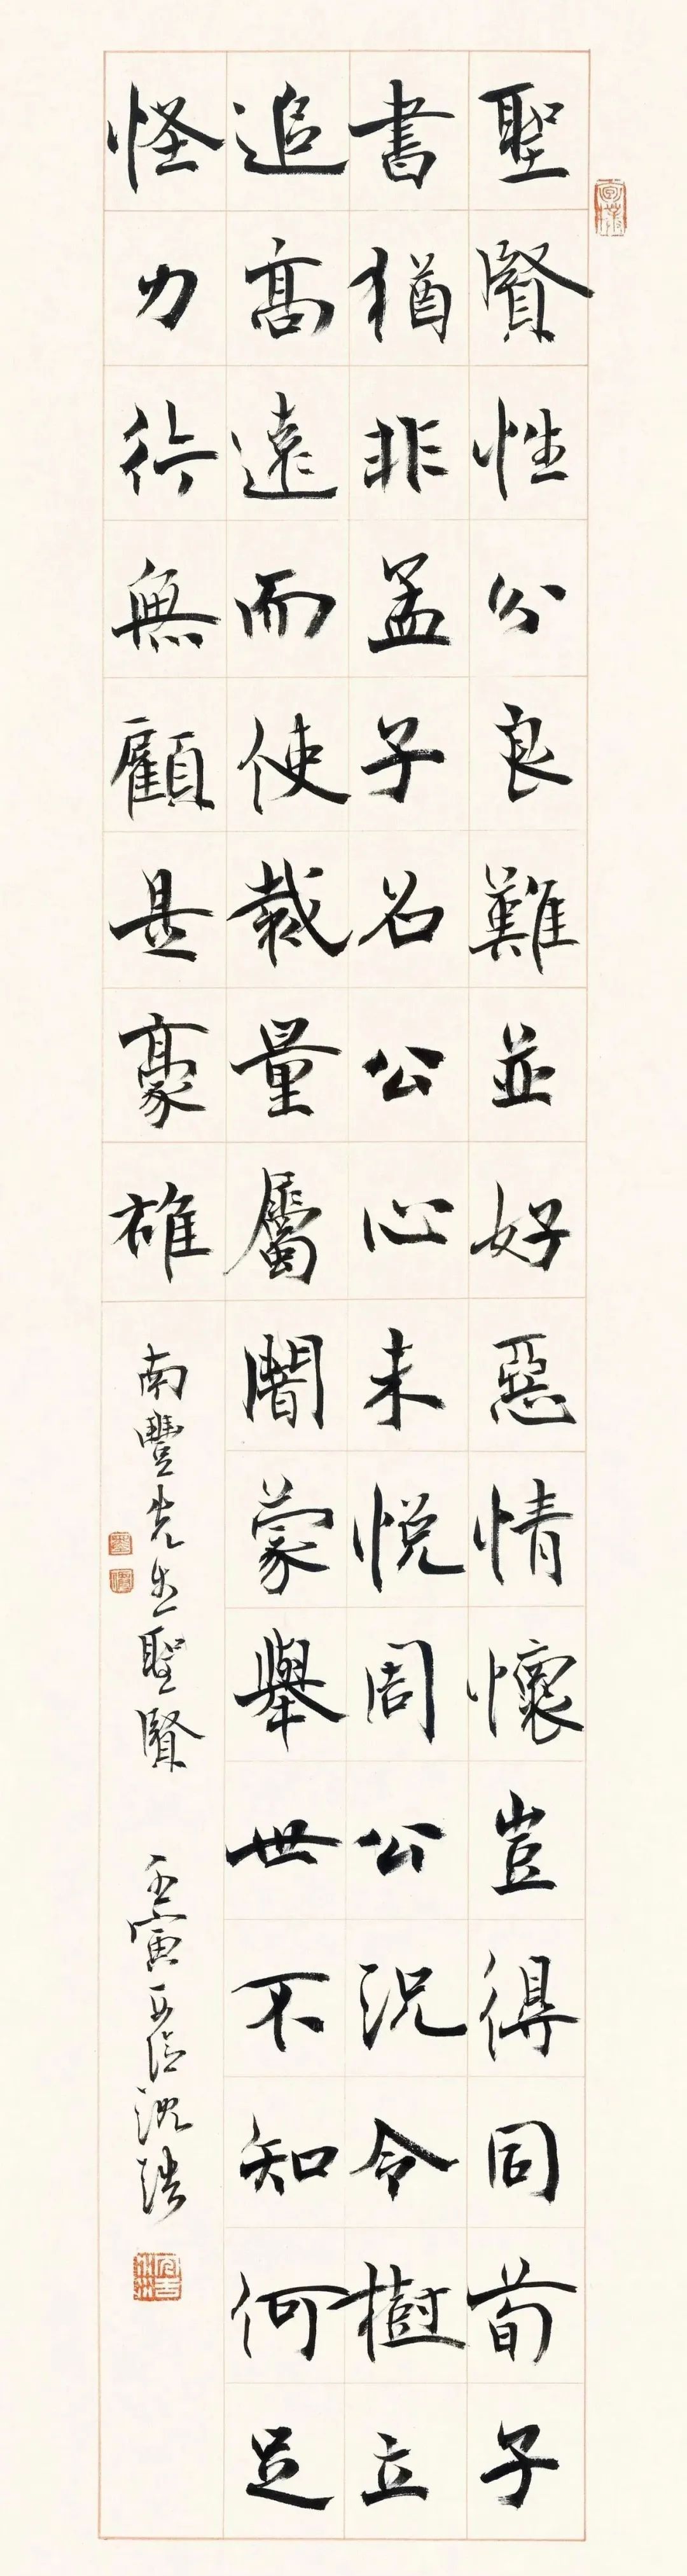 聖賢性公良難並好惡情懷豈得同荀子
書猶非孟子名公心未悅周公況令樹立
追高遠而使裁量屬闇蒙舉世不知何足
怪力行無顧是豪雄
南豐先生聖賢
壬寅 沈浩